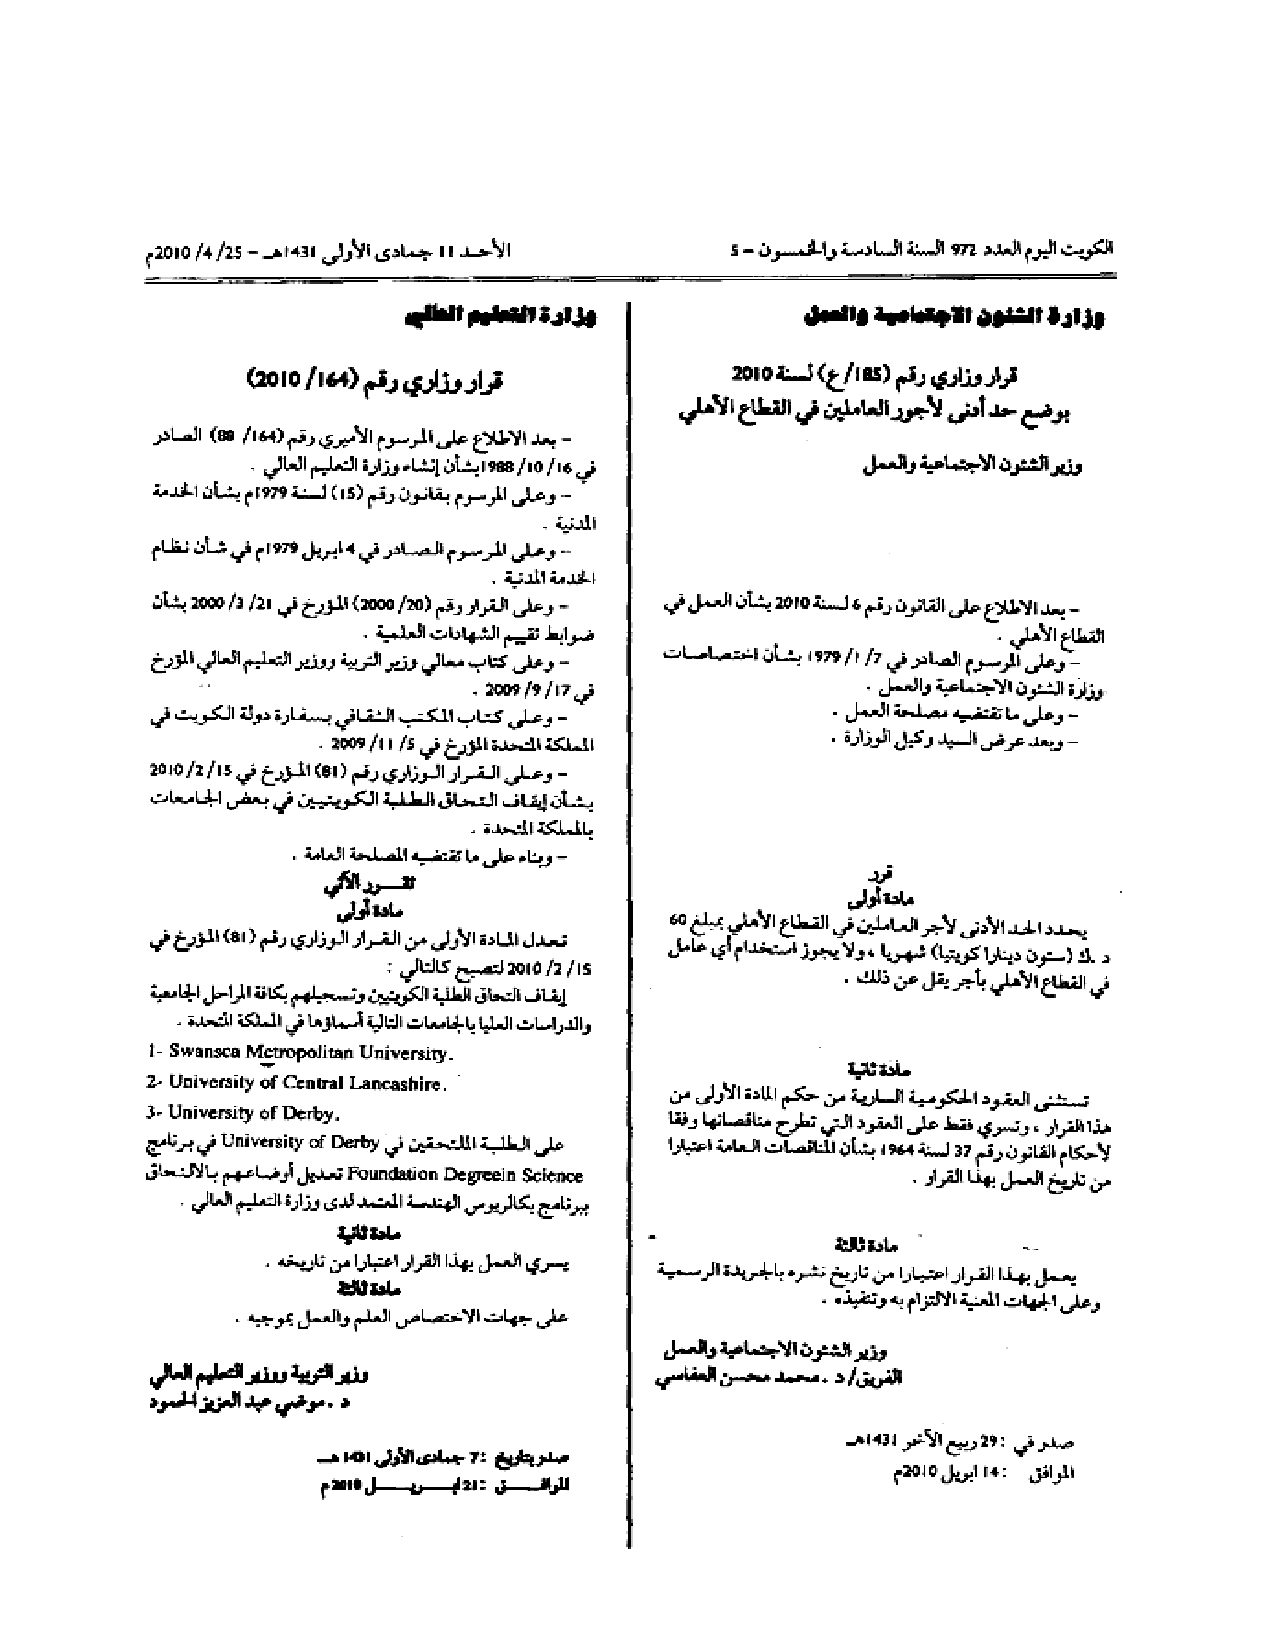 الكويت اليوم العدد 972 السنة السادسة والخمسون - 5
الأحد 11 جمادى الأولى 1431هـ - 25/ 4/ 2010م
وزارة الشئون الاجتماعية والعمل
قرار وزاري رقم (185/ع) لسنة 2010
بوضع حد أدنى لأجور العاملين في القطاع الأهلي
وزير الشئون الاجتماعية والعمل
- بعد الاطلاع على القانون رقم 6 لسنة 2010 بشأن العمل في
القطاع الأهلي .
- وعلى المرسوم الصادر في 7/ 1/ 1979 بشأن اختصاصات
وزارة الشئون الاجتماعية والعمل .
- وعلى ما تقتضيه مصلحة العمل .
- وبعد عرض السيد وكيل الوزارة .
قرر
مادة أولى
يحدد الحد الأدنى لأجر العاملين في القطاع الأهلي بمبلغ 60
د .ك (ستون دينارا كويتيا) شهريا ، ولا يجوز استخدام أي عامل
في القطاع الأهلي بأجر يقل عن ذلك .
مادة ثانية
تستثنى العقود الحكومية السارية من حكم المادة الأولى من
هذا القرار ، وتسري فقط على العقود التي تطرح مناقصاتها وفقا
لأحكام القانون رقم 37 لسنة 1964 بشأن المناقصات العامة اعتبارا
من تاريخ العمل بهذا القرار .
مادة ثالثة
يعمل بهذا القرار اعتبارا من تاريخ نشره بالجريدة الرسمية
وعلى الجهات المعنية الالتزام به وتنفيذه .
وزير الشئون الاجتماعية والعمل
الفريق/ د . محمد محسن العفاسي
صدر في : 29 ربيع الآخر 1431هـ
الموافق : 14 ابريل 2010م
وزارة التعليم العالي
قرار وزاري رقم (164/ 2010)
- بعد الاطلاع على المرسوم الأميري رقم (164/ 88) الصادر
في 16/ 10/ 1988 بشأن إنشاء وزارة التعليم العالي .
- وعلى المرسوم بقانون رقم (15) لسنة 1979م بشأن الخدمة
المدنية .
- وعلى المرسوم الصادر في 4 ابريل 1979م في شأن نظام
الخدمة المدنية .
- وعلى القرار رقم (20/ 2000) المؤرخ في 21/ 3/ 2000 بشأن
ضوابط تقييم الشهادات العلمية .
- وعلى كتاب معالي وزير التربية ووزير التعليم العالي المؤرخ
في 17/ 9/ 2009 .
- وعلى كتاب المكتب الثقافي بسفارة دولة الكويت في
المملكة المتحدة المؤرخ في 5/ 11/ 2009 .
- وعلى القرار الوزاري رقم (81) المؤرخ في 15/ 2/ 2010
بشأن إيقاف التحاق الطلبة الكويتيين في بعض الجامعات
بالمملكة المتحدة .
- وبناء على ما تقتضيه المصلحة العامة .
تقـــرر الآتي
مادة أولى
تعدل المادة الأولى من القرار الوزاري رقم (81) المؤرخ في
15/ 2/ 2010 لتصبح كالتالي :
إيقاف التحاق الطلبة الكويتيين وتسجيلهم بكافة المراحل الجامعية
والدراسات العليا بالجامعات التالية أسماؤها في المملكة المتحدة .
1- Swansca Metropolitan University.
2- University of Central Lancashire.
3- University of Derby.
على الطلبة الملتحقين في University of Derby في برنامج
Foundation Degreein Science تعديل أوضاعهم بالالتحاق
ببرنامج بكالريوس الهندسة المعتمد لدى وزارة التعليم العالي .
مادة ثانية
يسري العمل بهذا القرار اعتبارا من تاريخه .
مادة ثالثة
على جهات الاختصاص العلم والعمل بموجبه .
وزير التربية ووزير التعليم العالي
د . موضي عبد العزيز الحمود
صدر بتاريخ : 7 جمادى الأولى 1431هـ
الموافـــق : 21 ابـــريـــل 2010م